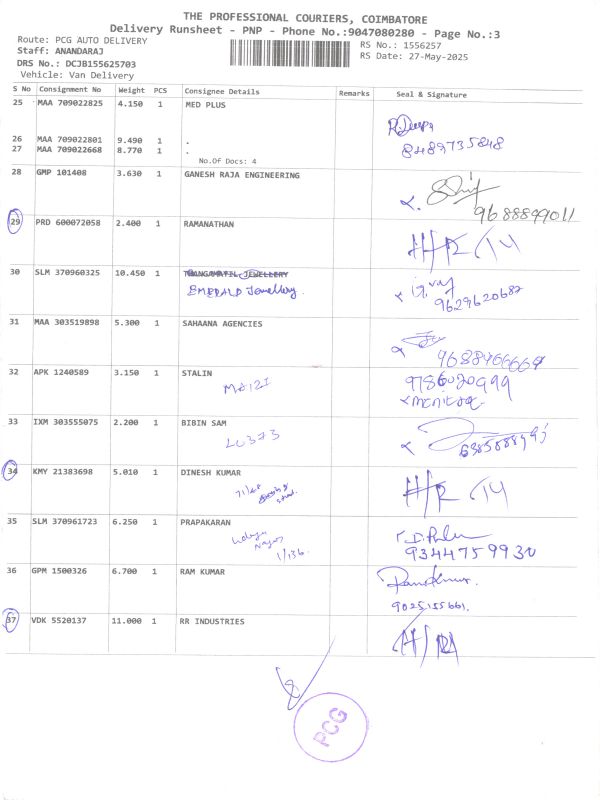 THE PROFESSIONAL COURIERS, COIMBATORE
Delivery Runsheet - PNP - Phone No.:9047080280 - Page No.:3
Route: PCG AUTO DELIVERY
RS No.: 1556257
Staff: ANANDARAJ
RS Date: 27-May-2025
DRS No.: DCJB155625703
Vehicle: Van Delivery
S No Consignment No Weight PCS Consignee Details Remarks Seal & Signature
25 MAA 709022825 4.150 1 MED PLUS
8489735848
26 MAA 709022801 9.490 1 .
27 MAA 709022668 8.770 1 .
No.Of Docs: 4
28 GMP 101408 3.630 1 GANESH RAJA ENGINEERING
9688899011
29 PRD 600072058 2.400 1 RAMANATHAN
30 SLM 370960325 10.450 1
EMERALD Jewellery.
9629620687
31 MAA 303519898 5.300 1 SAHAANA AGENCIES
32 APK 1240589 3.150 1 STALIN
9786020999
33 IXM 303555075 2.200 1 BIBIN SAM
34 KMY 21383698 5.010 1 DINESH KUMAR
35 SLM 370961723 6.250 1 PRAPAKARAN
9344759930
1/136.
36 GPM 1500326 6.700 1 RAM KUMAR
Ramkumar.
9025155661.
37 VDK 5520137 11.000 1 RR INDUSTRIES
PCG